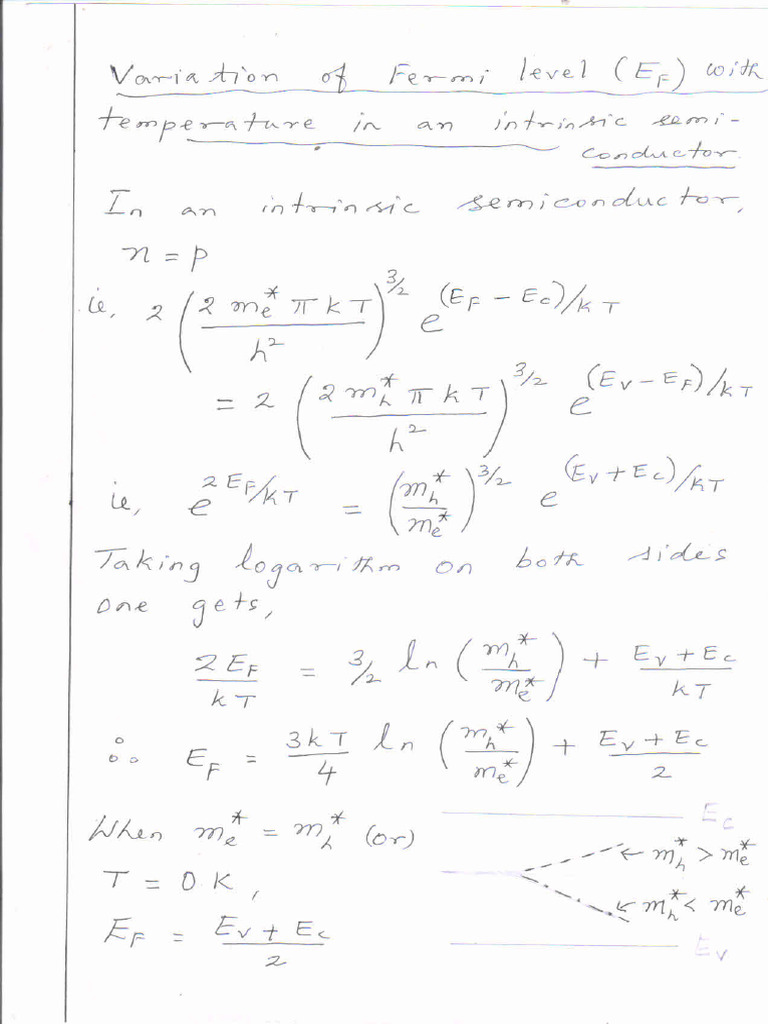 Variation of Fermi level (E_F) with
temperature in an intrinsic semi-
conductor.
In an intrinsic semiconductor,
n = p
ie, 2 (2 m_e^* π k T / h^2)^{3/2} e^{(E_F - E_C)/kT}
= 2 (2 m_h^* π k T / h^2)^{3/2} e^{(E_V - E_F)/kT}
ie, e^{2E_F/kT} = (m_h^* / m_e^*)^{3/2} e^{(E_V + E_C)/kT}
Taking logarithm on both sides
one gets,
2E_F / kT = 3/2 ln (m_h^* / m_e^*) + E_V + E_C / kT
∴ E_F = 3kT / 4 ln (m_h^* / m_e^*) + E_V + E_C / 2
When m_e^* = m_h^* (or)
T = 0K,
E_F = E_V + E_C / 2
E_C
← m_h^* > m_e^*
← m_h^* < m_e^*
E_V